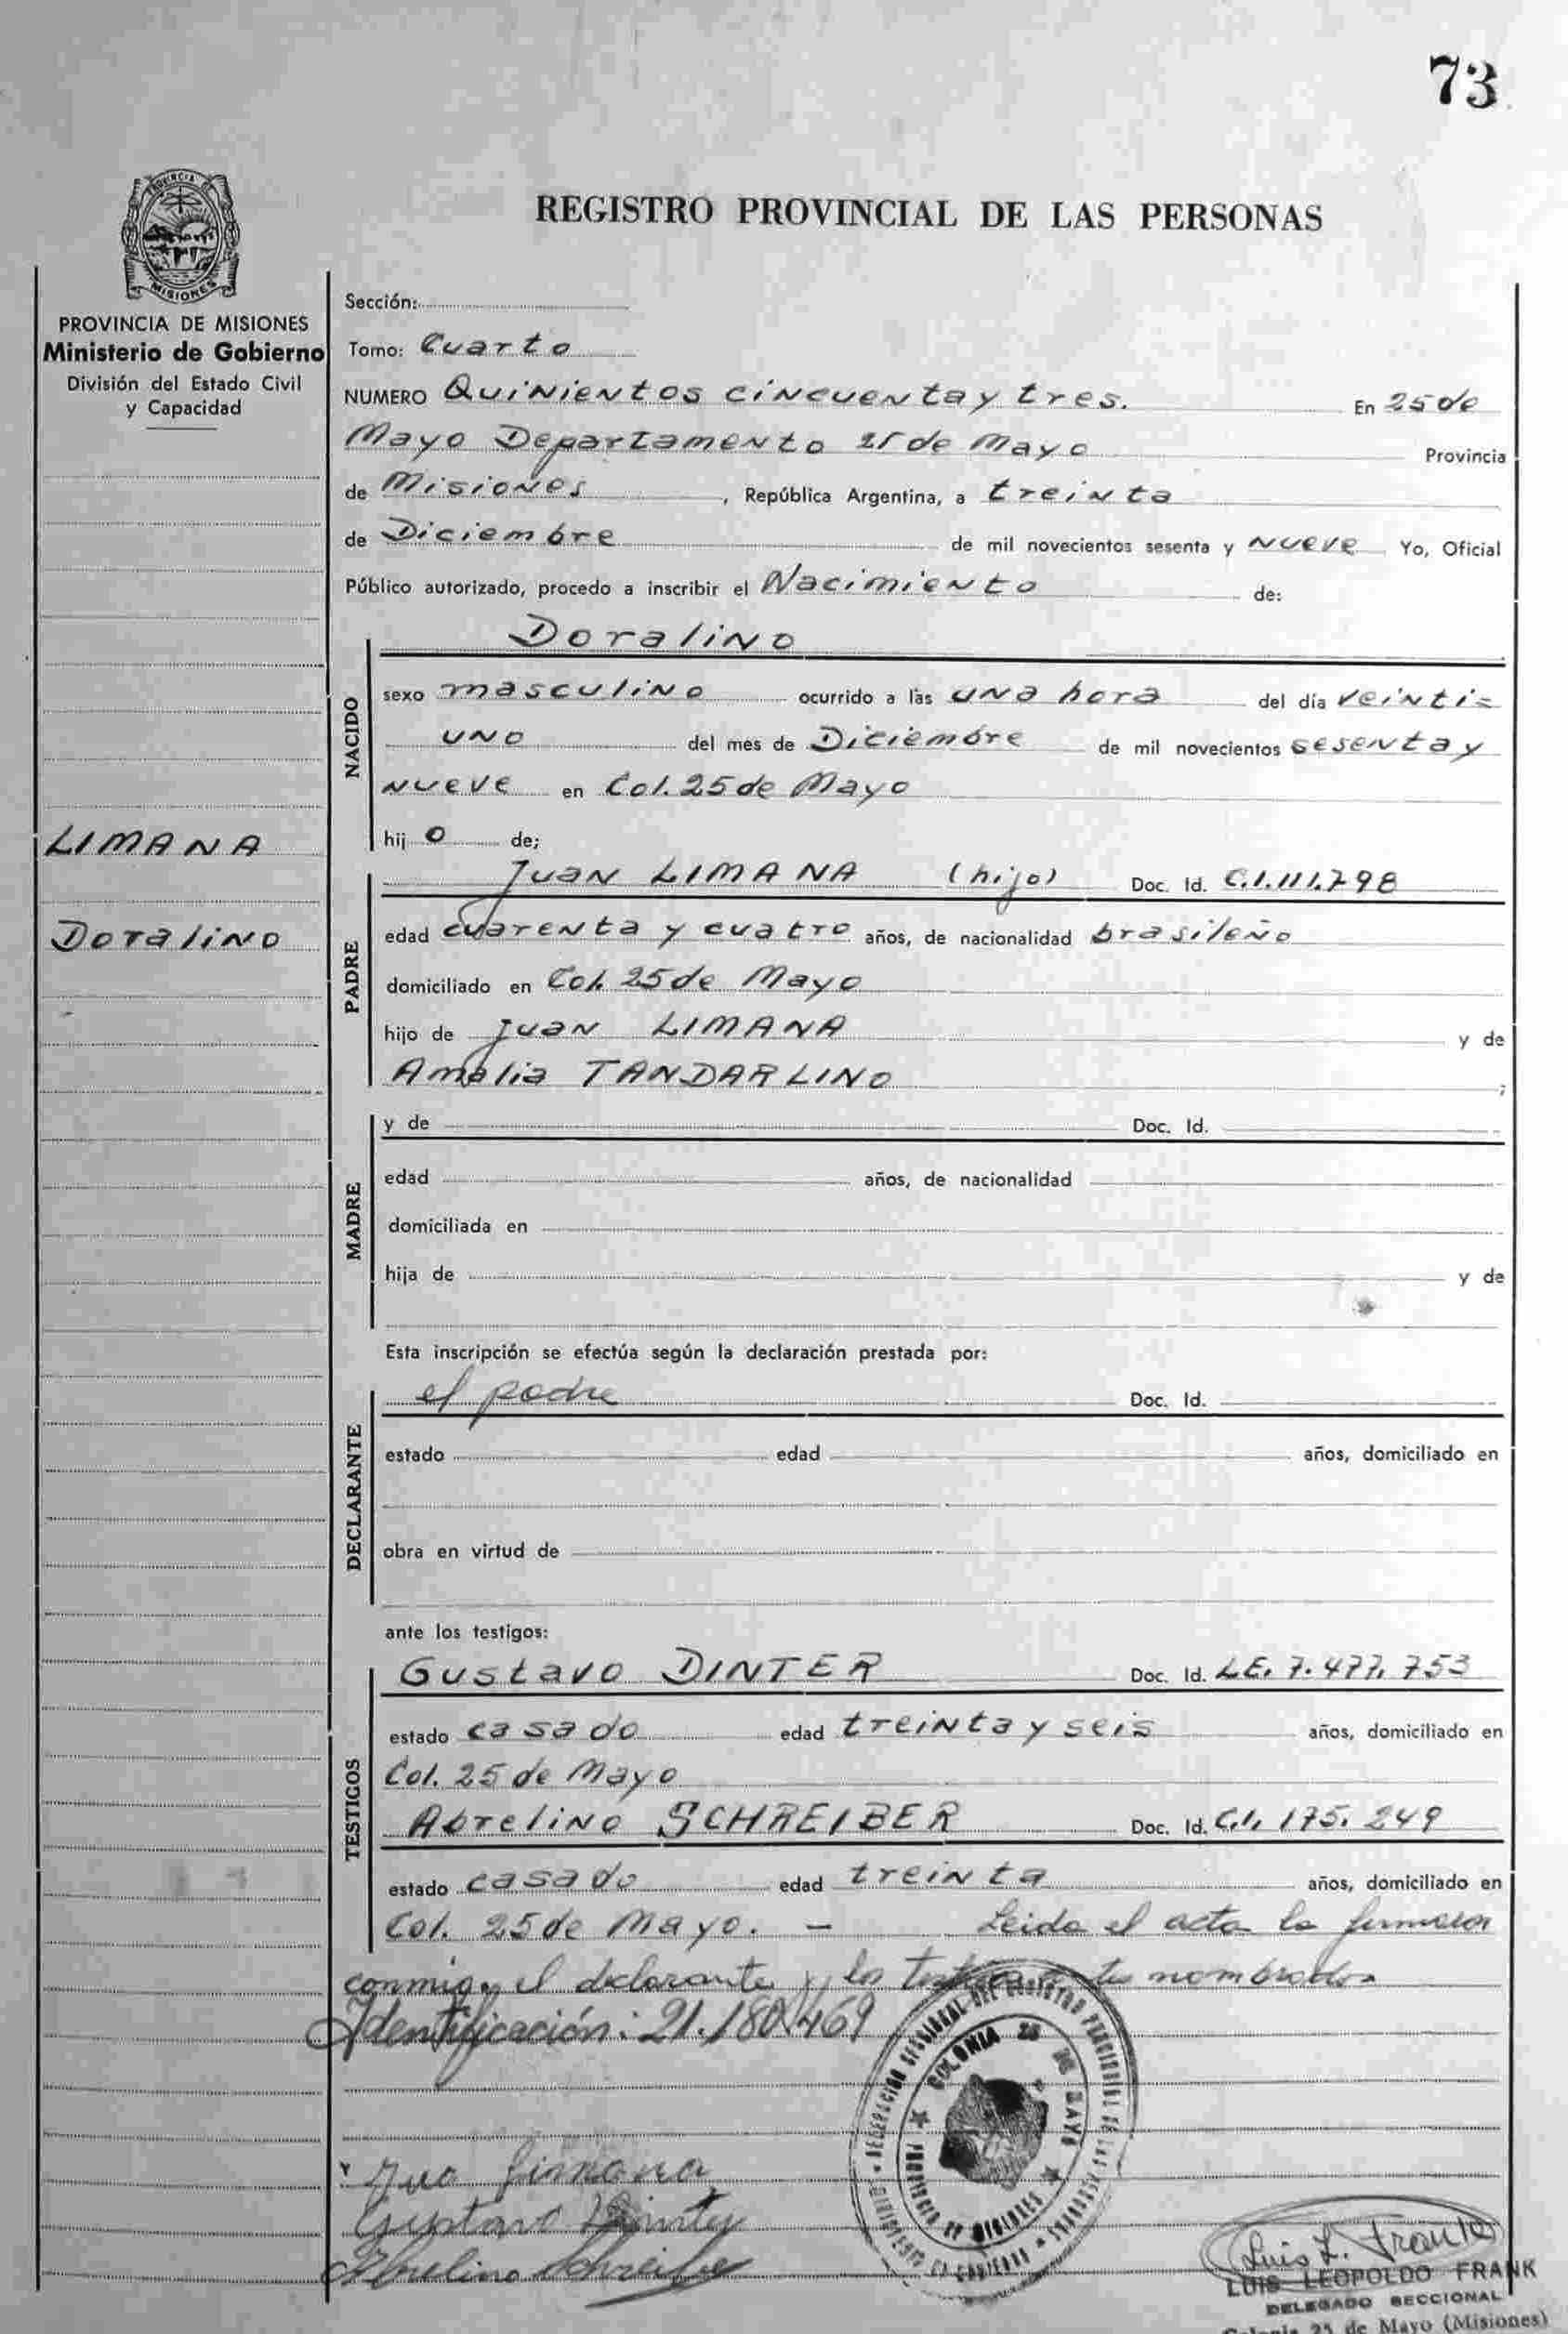 73
REGISTRO PROVINCIAL DE LAS PERSONAS
PROVINCIA DE MISIONES
Ministerio de Gobierno
División del Estado Civil
y Capacidad
LIMANA
Doralino
Sección:
Tomo: Cuarto
NUMERO Quinientos cincuenta y tres. En 25 de
Mayo Departamento 25 de Mayo Provincia
de Misiones, República Argentina, a treinta
de Diciembre de mil novecientos sesenta y nueve Yo, Oficial
Público autorizado, procedo a inscribir el Nacimiento de:
NACIDO
Doralino
sexo masculino ocurrido a las una hora del día veinti=
uno del mes de Diciembre de mil novecientos sesenta y
nueve en Col. 25 de Mayo
hij o de;
PADRE
Juan LIMANA (hijo) Doc. Id. C.I. 111.798
edad cuarenta y cuatro años, de nacionalidad brasileño
domiciliado en Col. 25 de Mayo
hijo de Juan LIMANA y de
Amalia TANDARLINO ;
MADRE
y de Doc. Id.
edad años, de nacionalidad
domiciliada en
hija de y de
Esta inscripción se efectúa según la declaración prestada por:
DECLARANTE
el padre Doc. Id.
estado edad años, domiciliado en
obra en virtud de
ante los testigos:
TESTIGOS
Gustavo DINTER Doc. Id. L.E. 7.477.753
estado casado edad treinta y seis años, domiciliado en
Col. 25 de Mayo
Abrelino SCHREIBER Doc. Id. C.I. 175.249
estado casado edad treinta años, domiciliado en
Col. 25 de Mayo. — Leida el acta la firman
conmigo el declarante y los testigos nombrados
Identificación: 21.180.469
COLONIA 25 DE MAYO
PROVINCIA DE MISIONES
Gustavo Dinter
Abrelino Schreiber
Luis L. Frank
LUIS LEOPOLDO FRANK
DELEGADO SECCIONAL
Colonia 25 de Mayo (Misiones)